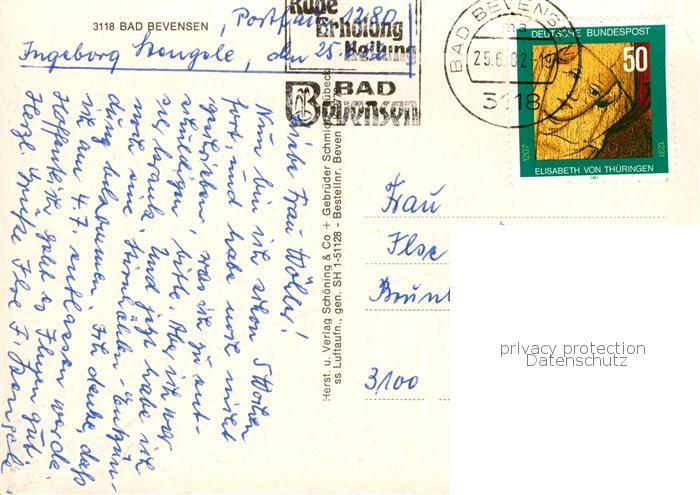 3118 BAD BEVENSEN
, Postfach 1280
Ingeborg Mengele, den 25.
Ruhe
Erholung
Heilung
BAD
Bevensen
BAD BEVENSEN
25.6.82-19
3118
DEUTSCHE BUNDESPOST
50
1207
1231
ELISABETH VON THÜRINGEN
1981
Liebe Frau Wöhler!
Nun bin ich schon 5 Wochen
fort, und habe noch nicht
geschrieben, was ich zu ent-
schuldigen bitte. Aber ich war
sehr krank. Und jetzt habe ich
noch eine Stirnhöhlen-Entzün-
dung bekommen. Ich denke, daß
ich am 4.7. entlassen werde.
Hoffentlich geht es Ihnen gut.
Herzl. Grüße Ihre I. Mengele
Herst. u. Verlag Schöning & Co + Gebrüder Schmidt, Lübeck
ss Luftaufn., gen. SH 1-51128 - Bestellnr. Beven
Frau
Ilse
3100
privacy protection
Datenschutz